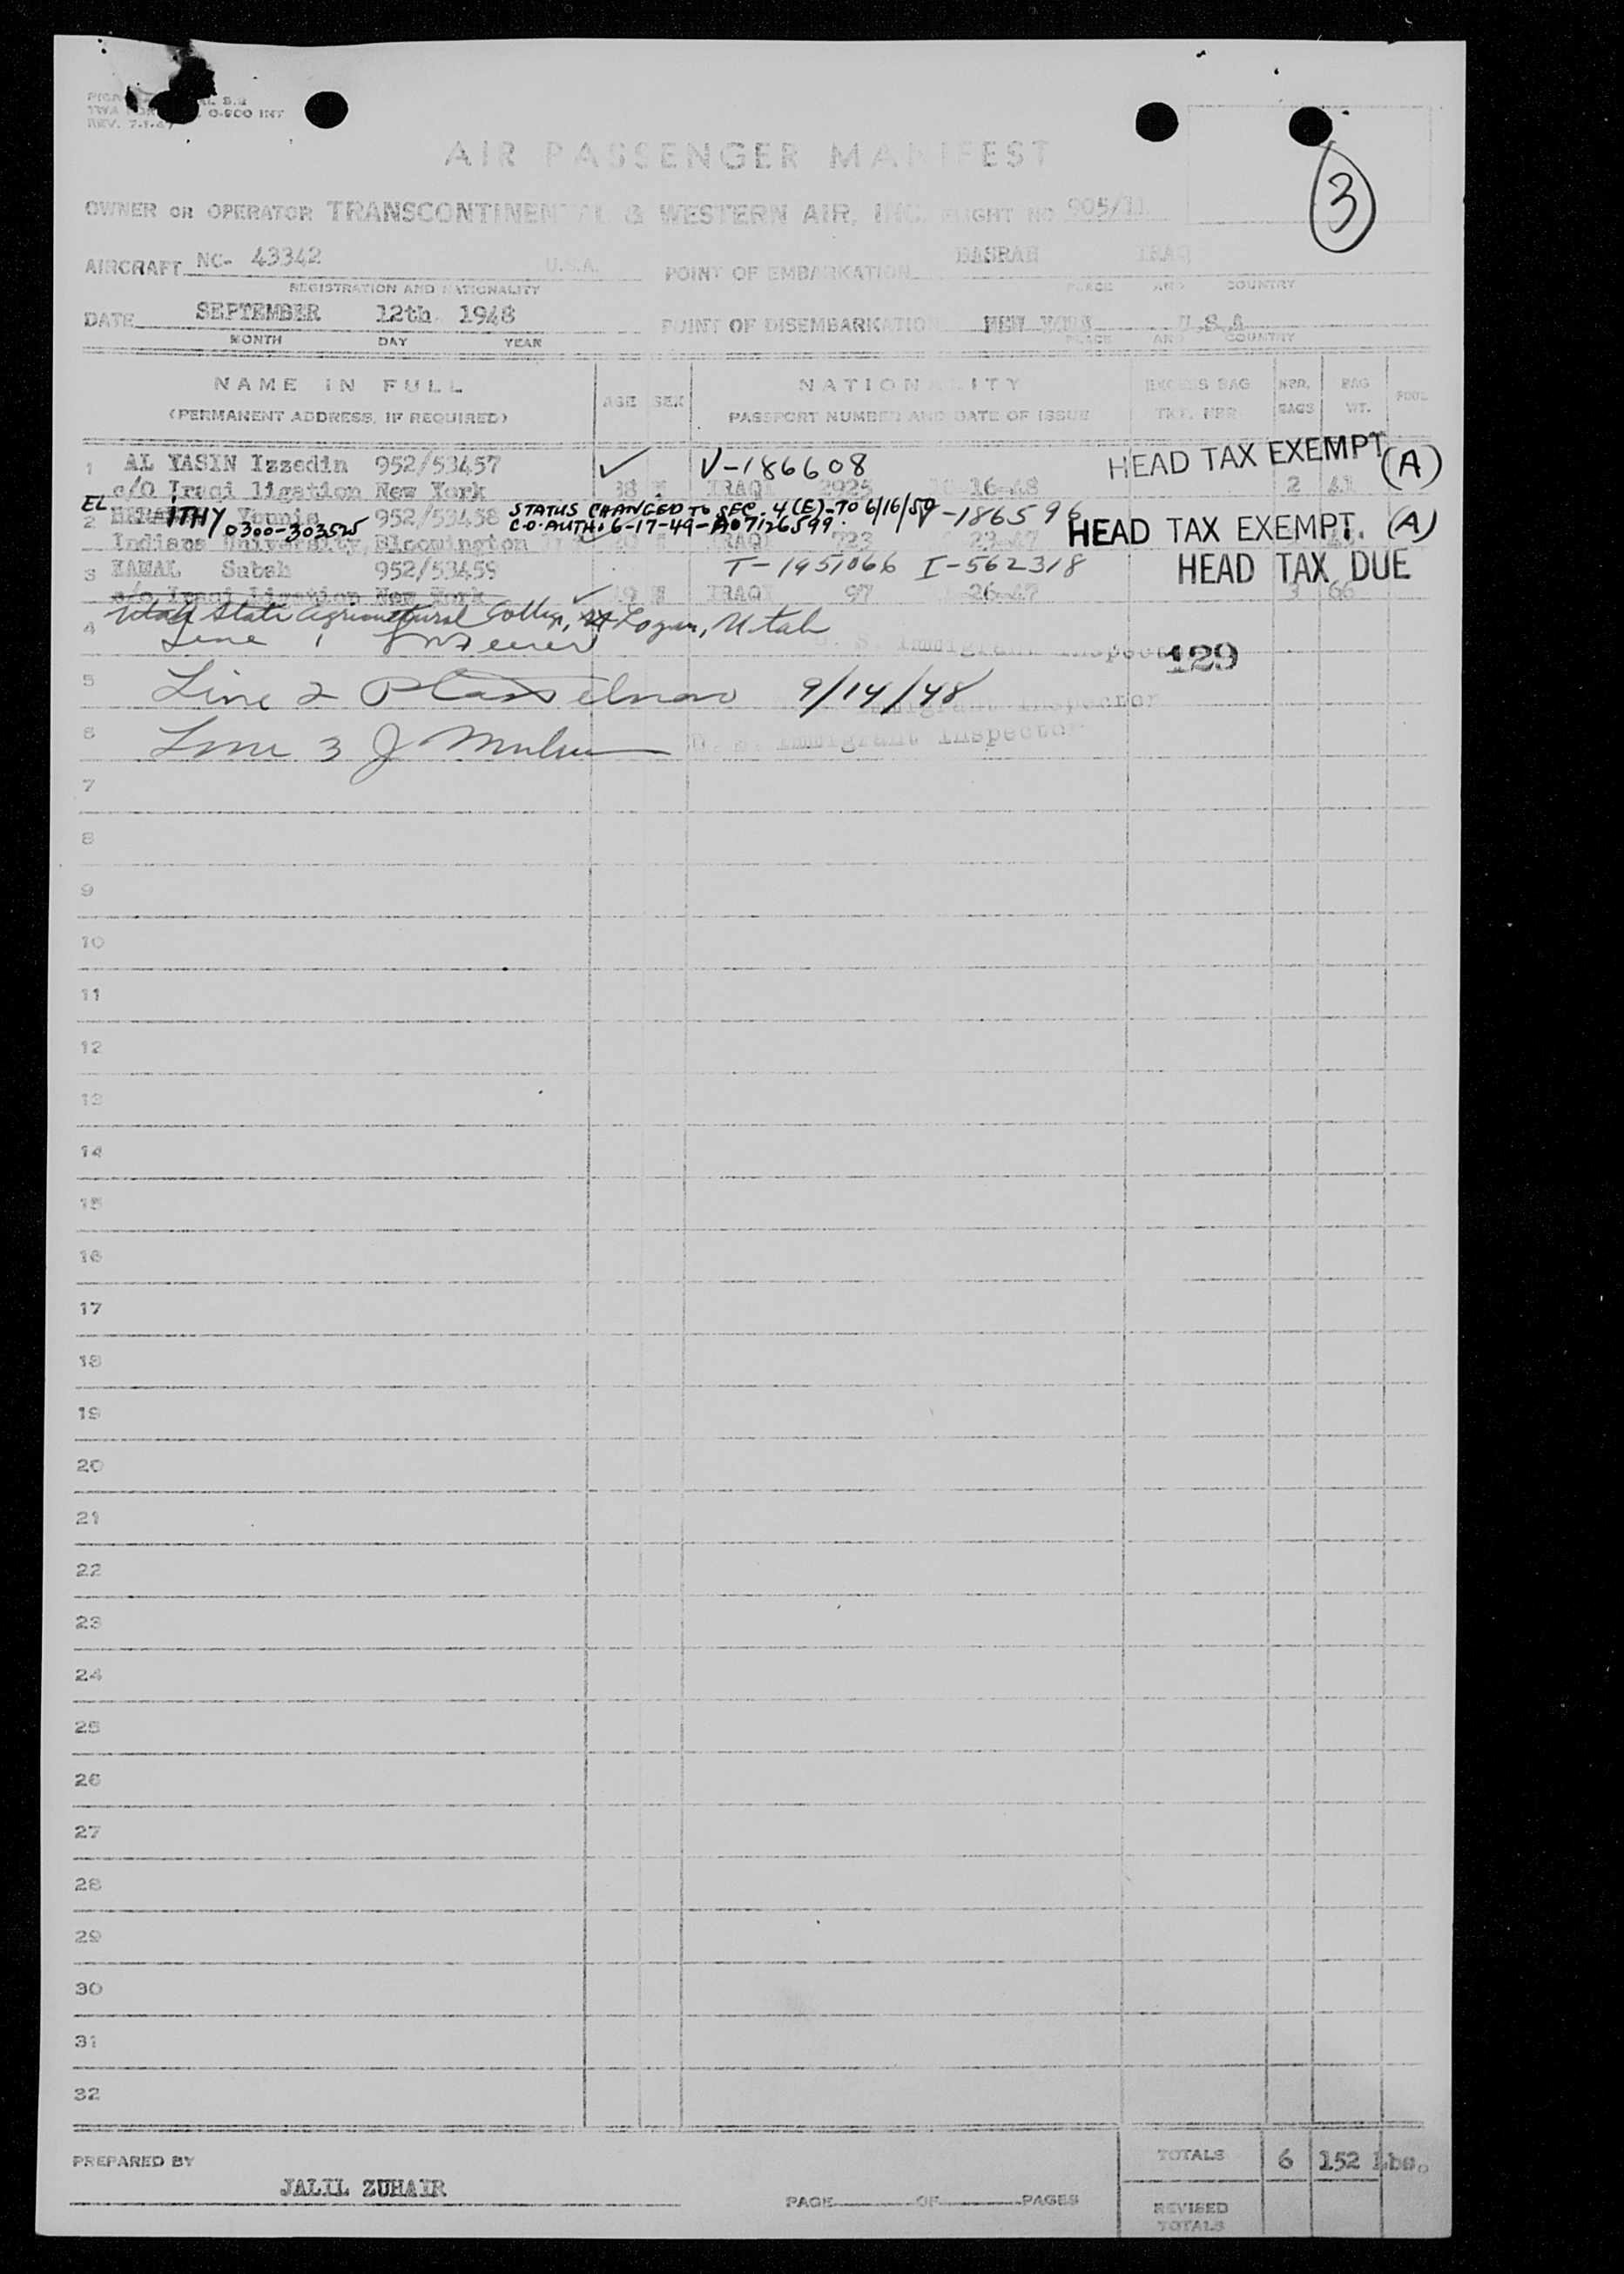 REV. 7-1-47
AIR PASSENGER MANIFEST
3
OWNER OR OPERATOR TRANSCONTINENTAL & WESTERN AIR, INC. FLIGHT NO. 905/11
AIRCRAFT NC- 43342 U.S.A. POINT OF EMBARKATION BASRAH IRAQ
REGISTRATION AND NATIONALITY PLACE AND COUNTRY
DATE SEPTEMBER 12th 1948 POINT OF DISEMBARKATION NEW YORK U.S.A
MONTH DAY YEAR PLACE AND COUNTRY
NAME IN FULL AGE SEX NATIONALITY EXCESS BAG NBR. BAG POOL
(PERMANENT ADDRESS, IF REQUIRED) PASSPORT NUMBER AND DATE OF ISSUE TKT. NBR BAGS WT.
1 AL YASIN Izzedin 952/53457 ✓ V-186608 HEAD TAX EXEMPT (A)
c/o Iraqi ligation New York 38 M IRAQI 2925 16-48 2 41
EL STATUS CHANGED TO SEC. 4(E)-TO 6/16/50 V-186596
2 ITHY Younis 0300-303525 952/53458 C.O. AUTH: 6-17-49-A07126599. HEAD TAX EXEMPT. (A)
Indiana University Bloomington IRAQI 723 23-47
3 KAMAL Sabah 952/53459 T-1951066 I-562318 HEAD TAX DUE
c/o Iraqi ligation New York ✓ 19 M IRAQI 97 26-47 3 66
4 Utah State Agricultural College, Logan, Utah
Line 1 U. S. Immigrant Inspector 129
5 Line 2 9/14/48 Immigrant Inspector
6 Line 3 J U. S. Immigrant Inspector
7
8
9
10
11
12
13
14
15
16
17
18
19
20
21
22
23
24
25
26
27
28
29
30
31
32
PREPARED BY TOTALS 6 152 Lbs.
JALIL ZUHAIR
PAGE OF PAGES REVISED
TOTALS